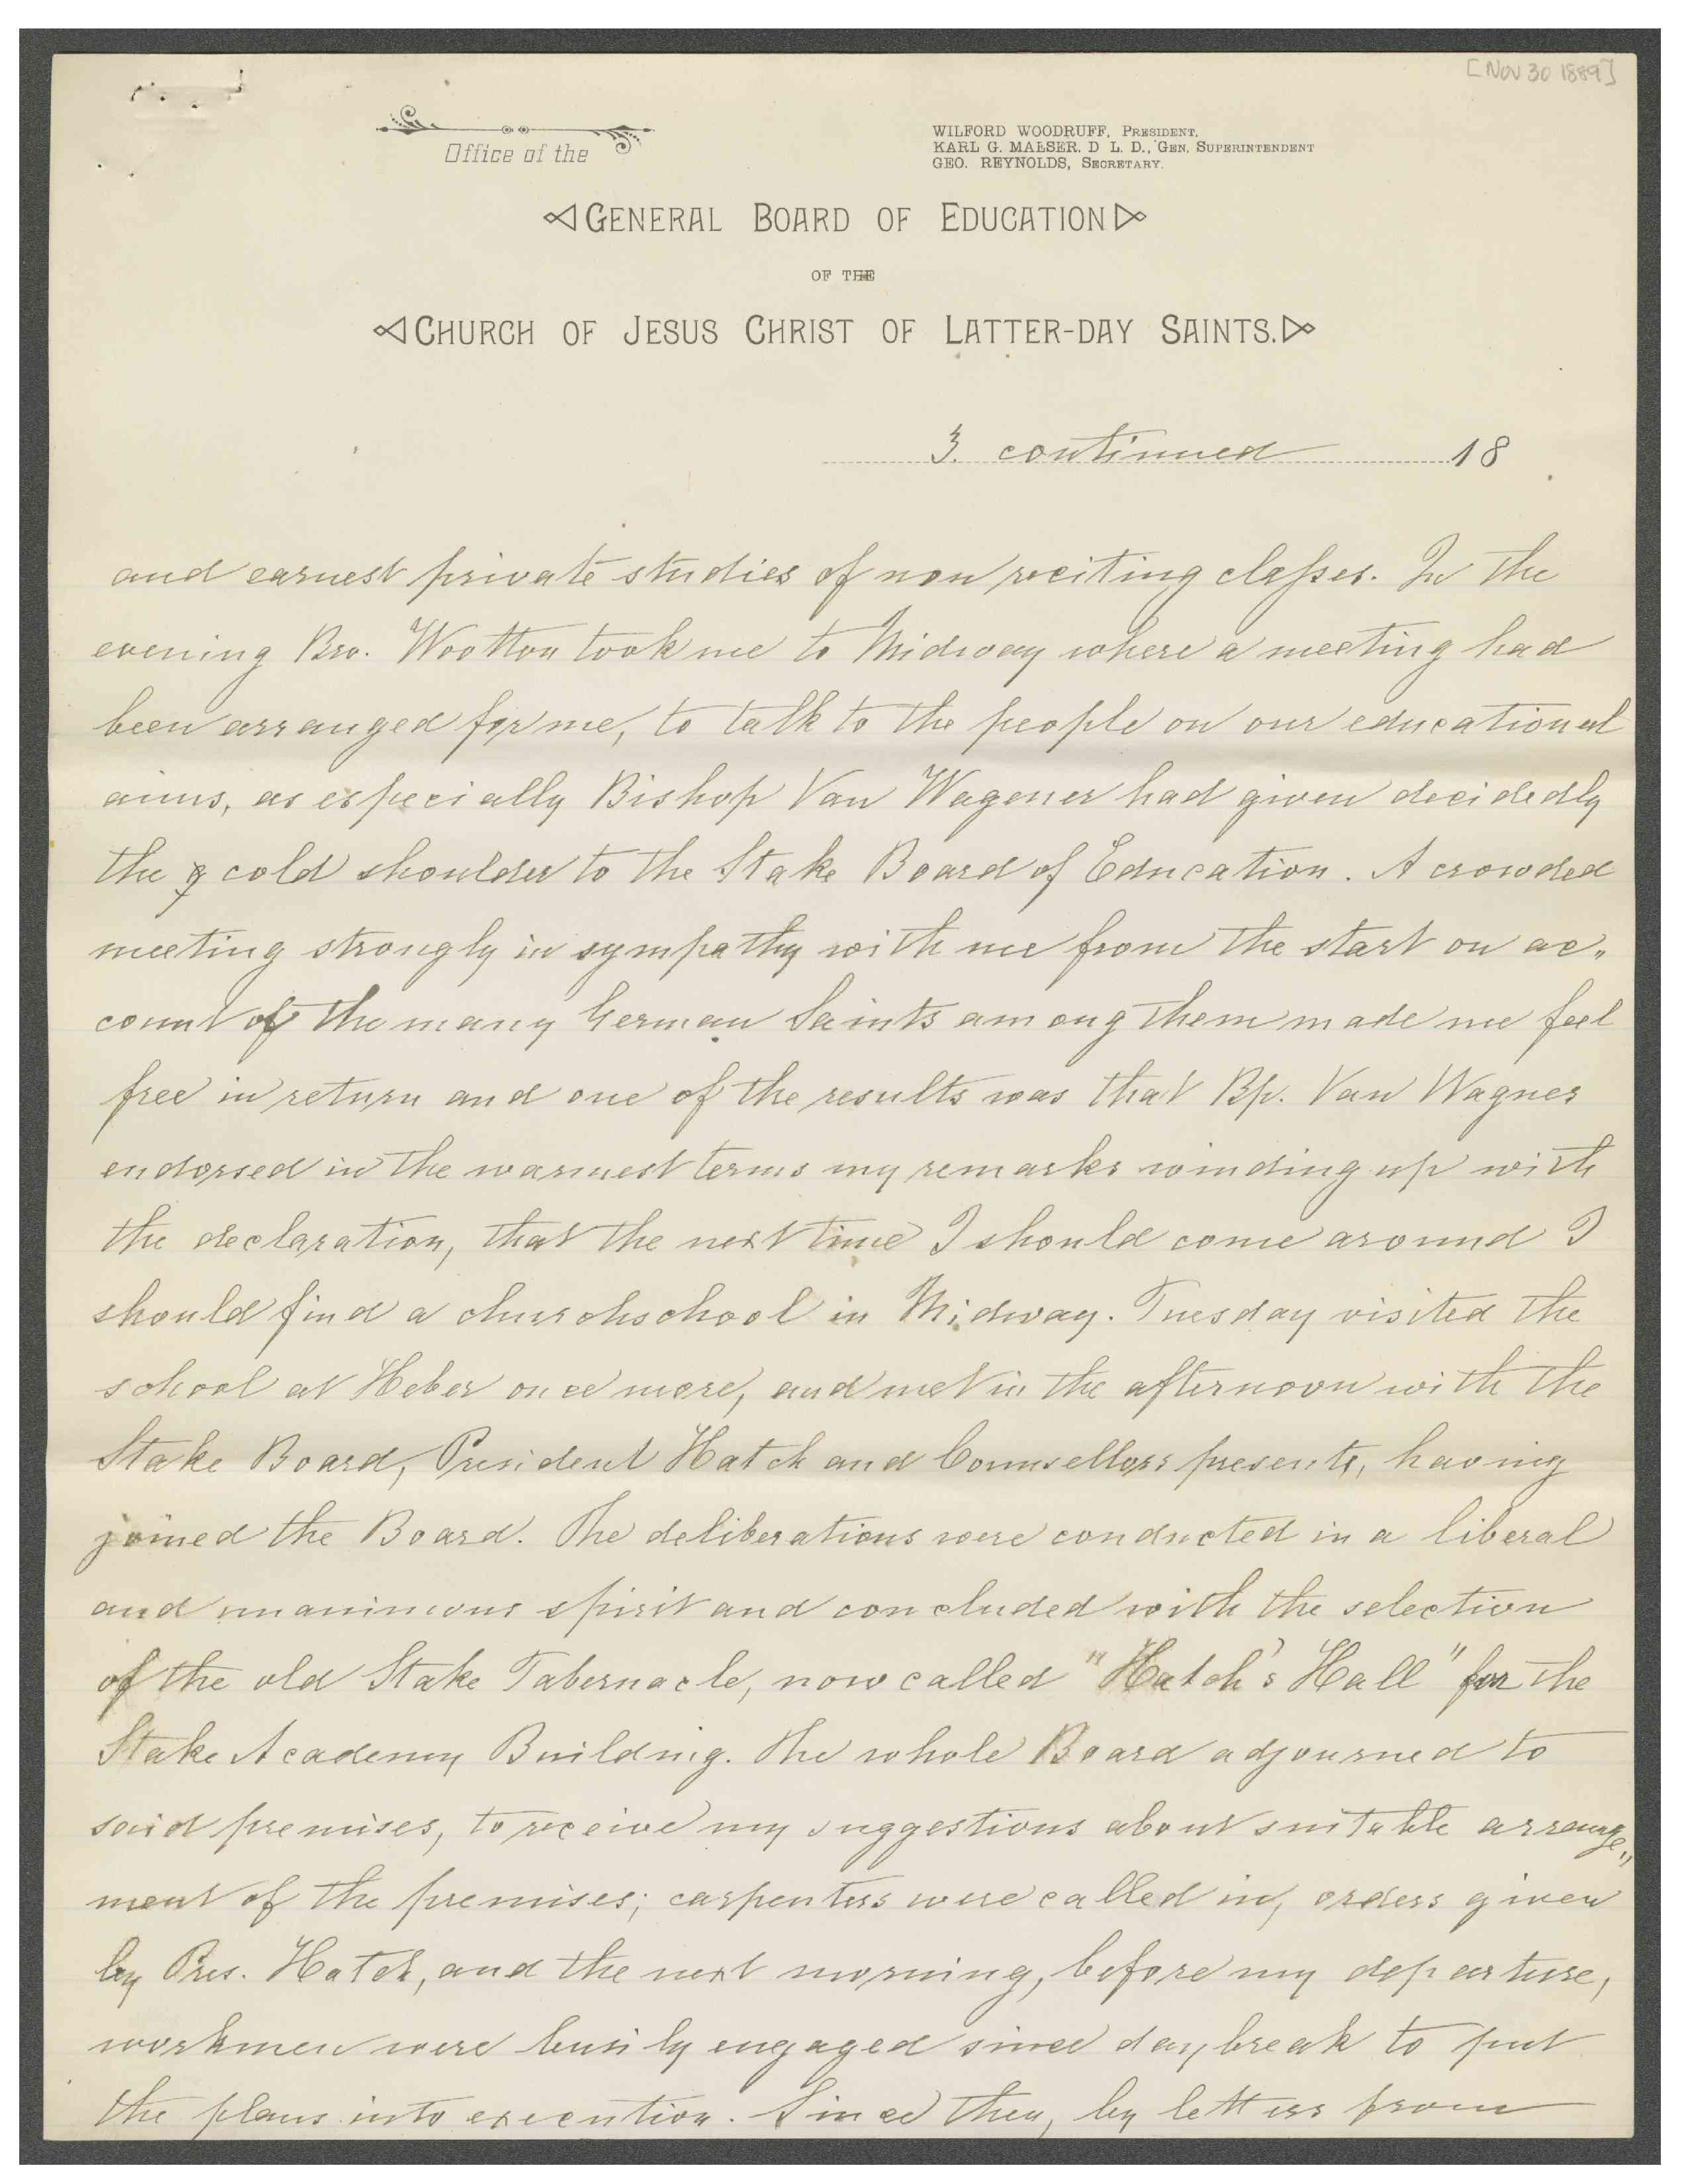 [Nov 30 1889]
Office of the
WILFORD WOODRUFF, PRESIDENT,
KARL G. MAESER, D L. D., GEN. SUPERINTENDENT
GEO. REYNOLDS, SECRETARY.
GENERAL BOARD OF EDUCATION
OF THE
CHURCH OF JESUS CHRIST OF LATTER-DAY SAINTS.
3. continued 18
and earnest private studies of non reciting classes. In the
evening Bro. Wootton took me to Midway where a meeting had
been arranged for me, to talk to the people on our educational
aims, as especially Bishop Van Wagener had given decidedly
the cold shoulder to the Stake Board of Education. A crowded
meeting strongly in sympathy with me from the start on ac„
count of the many German Saints among them made me feel
free in return and one of the results was that Bp. Van Wagner
endorsed in the warmest terms my remarks winding up with
the declaration, that the next time I should come around I
should find a churchschool in Midway. Tuesday visited the
school at Heber once more, and met in the afternoon with the
Stake Board, President Hatch and Counsellors presents, having
joined the Board. The deliberations were conducted in a liberal
and unanimous spirit and concluded with the selection
of the old Stake Tabernacle, now called "Hatch's Hall" for the
Stake Academy Building. The whole Board adjourned to
said premises, to receive my suggestions about suitable arrange„
ment of the premises; carpenters were called in, orders given
by Pres. Hatch, and the next morning, before my departure,
workmen were busily engaged since daybreak to put
the plans into execution. Since then, by letters from